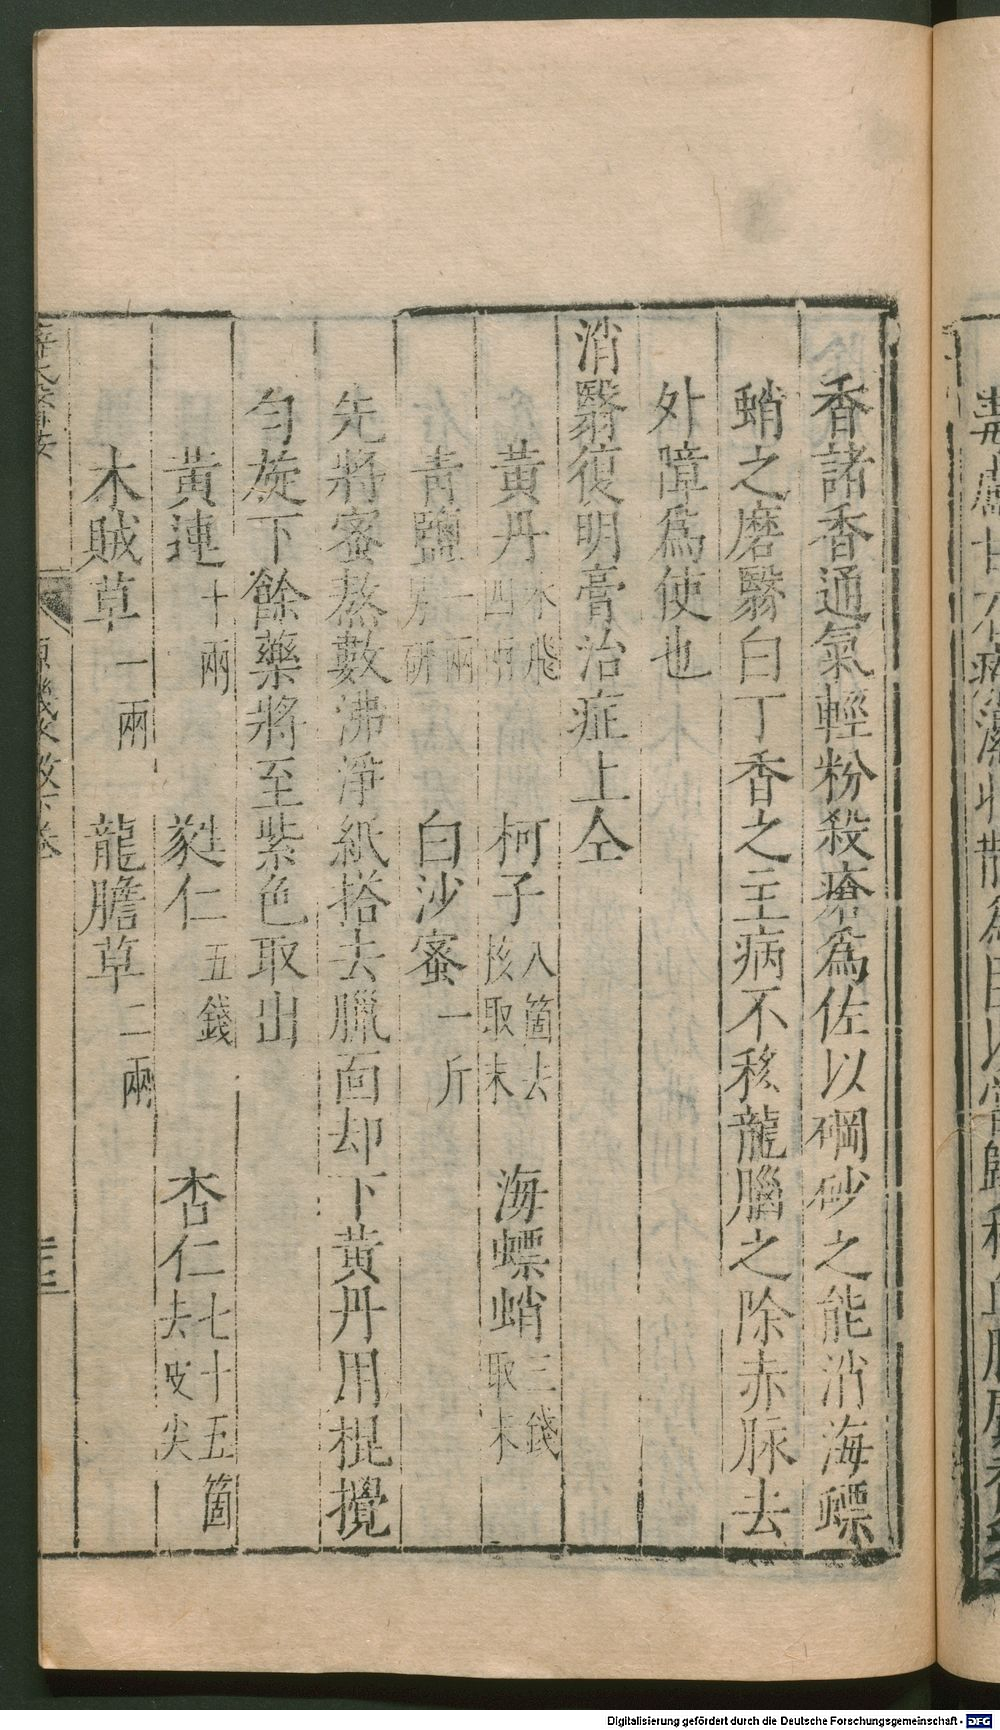 香諸香通氣輕粉殺瘡爲佐以碙砂之能消海螵
蛸之磨翳白丁香之主病不移龍腦之除赤脉去
外障爲使也
消翳復明膏治症上仝
黃丹水飛四兩 柯子八箇去核取末 海螵蛸三錢取末
青鹽一兩另研 白沙蜜一斤
先將蜜熬數沸淨紙搭去臘面却下黃丹用棍攪
勻旋下餘藥將至紫色取出
黃連十兩 蕤仁五錢 杏仁七十五箇去皮尖
木賊草一兩 龍膽草二兩
Digitalisierung gefördert durch die Deutsche Forschungsgemeinschaft - DFG